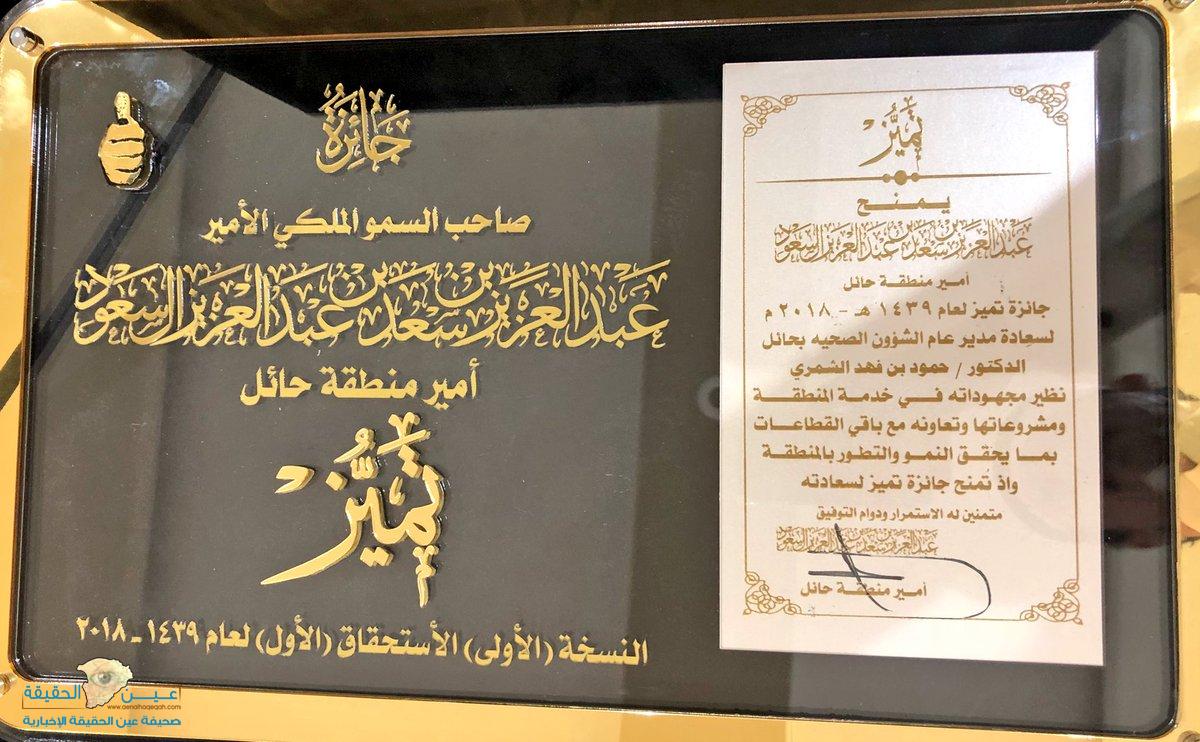 جائزة
صاحب السمو الملكي الأمير
عبدالعزيز بن سعد بن عبدالعزيز السعود
أمير منطقة حائل
تميّز
النسخة (الأولى) الأستحقاق (الأول) لعام ١٤٣٩ ـ ٢٠١٨
تميّز
يمنح
عبدالعزيز بن سعد بن عبدالعزيز السعود
أمير منطقة حائل
جائزة تميز لعام ١٤٣٩ هـ - ٢٠١٨ م
لسعادة مدير عام الشؤون الصحيه بحائل
الدكتور / حمود بن فهد الشمري
نظير مجهوداته في خدمة المنطقة
ومشروعاتها وتعاونه مع باقي القطاعات
بما يحقق النمو والتطور بالمنطقة
واذ تمنح جائزة تميز لسعادته
متمنين له الاستمرار ودوام التوفيق
عبدالعزيز بن سعد بن عبدالعزيز السعود
أمير منطقة حائل
عين الحقيقة
www.aenalhaqeqah.com
صحيفة عين الحقيقة الإخبارية